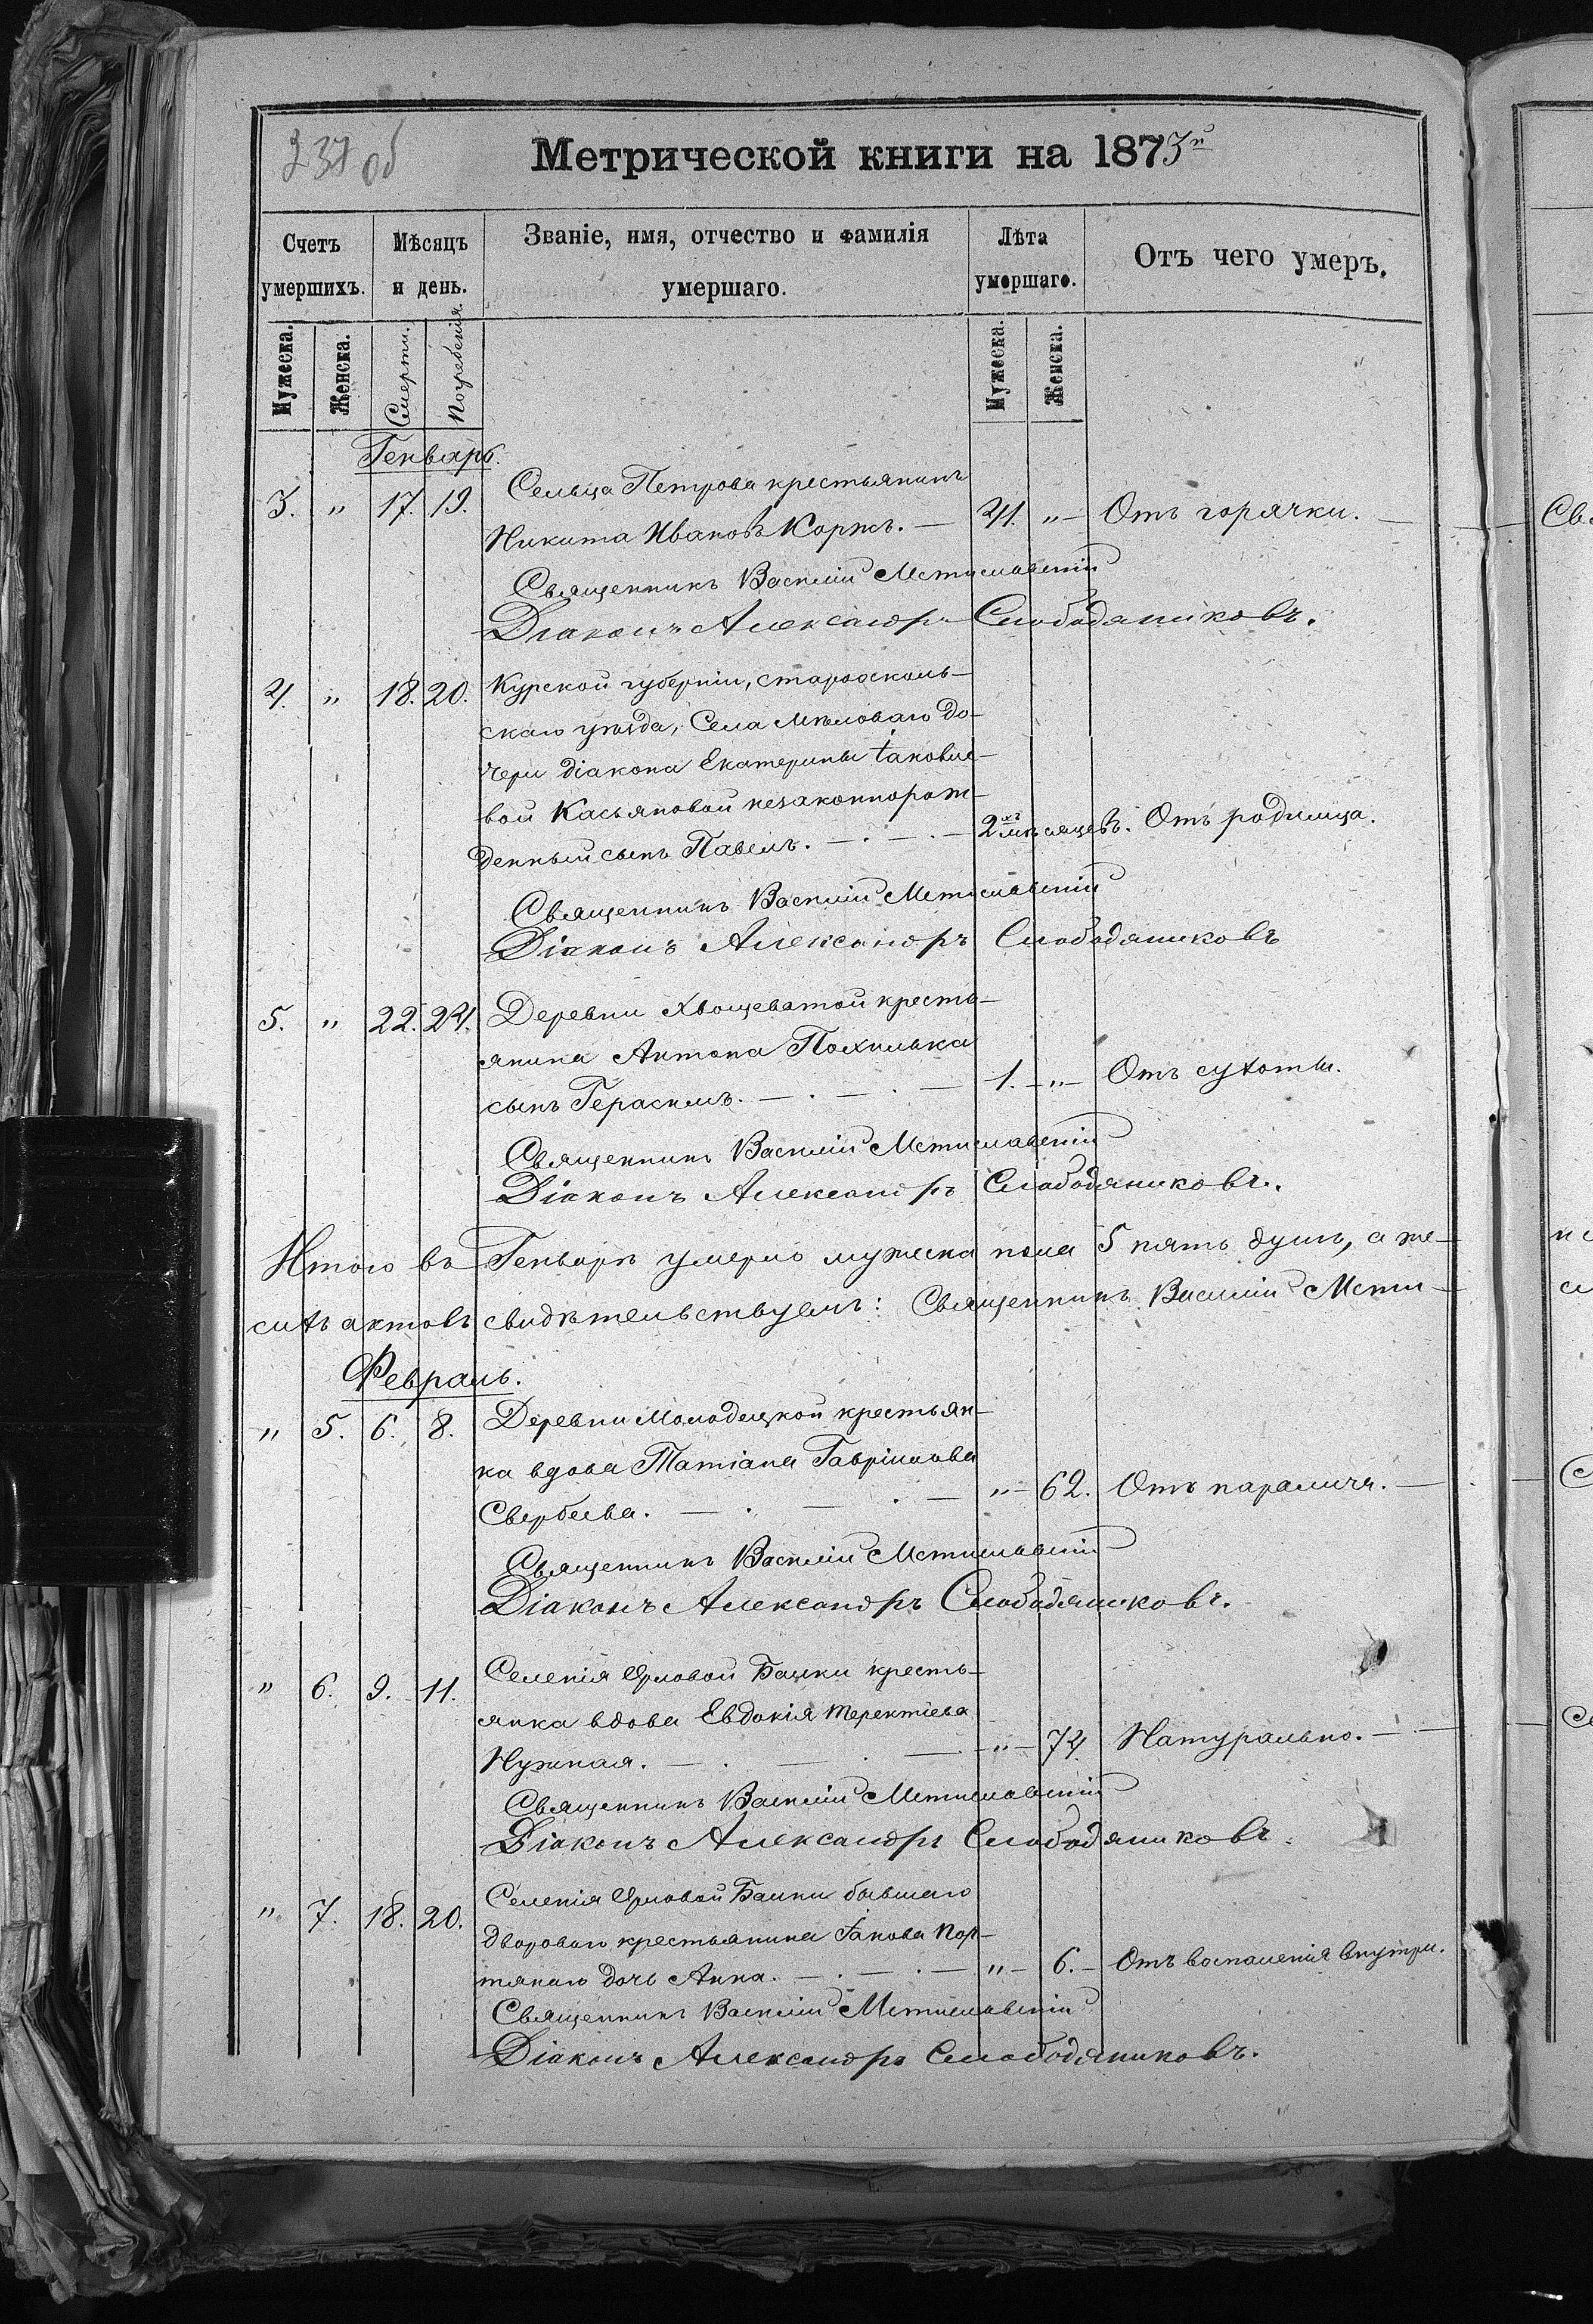 237 об
Метрической книги на 1873й
Счетъ умершихъ.
Мѣсяцъ и день.
Званіе, имя, отчество и фамилія умершаго.
Лѣта умершаго.
Отъ чего умеръ.
Мужеска. Женска. Смерти. Погребенія. Мужеска. Женска.
Генварь.
Сельца Петрова крестьянинъ
3. „ 17. 19. Никита Ивановъ Коржъ. — 41. „ — Отъ горячки. —
Священникъ Василій Мстиславскій
Діаконъ Александръ Слободяниковъ.
4. „ 18. 20. Курской губерніи, старооскол-
скаго уѣзда, Села Мѣловаго до-
чери діакона Екатерины Іаковле-
вой Касьяновой незаконнорож-
денный сынъ Павелъ. — . — . — 2хъ мѣсяцевъ. Отъ родимца.
Священникъ Василій Мстиславскій
Діаконъ Александръ Слободяниковъ
5. „ 22. 24. Деревни Хвощеватой кресть-
янина Антона Похилька
сынъ Герасимъ. — . — . — 1. — „ — Отъ сухоты.
Священникъ Василій Мстиславскій
Діаконъ Александръ Слободяниковъ.
Итого въ Генварѣ умерло мужеска пола 5 пять душъ, а же-
сихъ актовъ свидѣтельствуемъ: Священникъ Василій Мсти-
Февраль.
„ 5. 6. 8. Деревни Молодецкой крестьян-
ка вдова Татіана Гавріилова
Свербеева. — . — . — „ — 62. Отъ паралича. —
Священникъ Василій Мстиславскій
Діаконъ Александръ Слободяниковъ.
„ 6. 9. 11. Селенія Орловой Балки кресть-
янка вдова Евдокія Терентіева
Нужная. — . — . — „ — 74. Натурально. —
Священникъ Василій Мстиславскій
Діаконъ Александръ Слободяниковъ.
„ 7. 18. 20. Селенія Орловой Балки бывшаго
двороваго крестьянина Іакова Пор-
тянаго дочь Анна. — . — . — „ — 6. — Отъ воспаленія внутри.
Священникъ Василій Мстиславскій
Діаконъ Александръ Слободяниковъ.